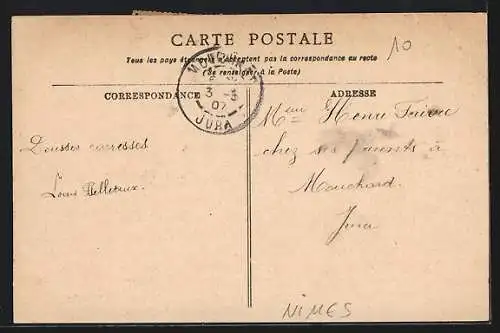 CARTE POSTALE
10
Tous les pays étrangers n'acceptent pas la correspondance au recto
(Se renseigner à la Poste)
CORRESPONDANCE
ADRESSE
MOUCHARD
3 -3
07
JURA
Douces caresses
Louis
Henri
chez ses parents à
Mouchard.
Jura
NIMES